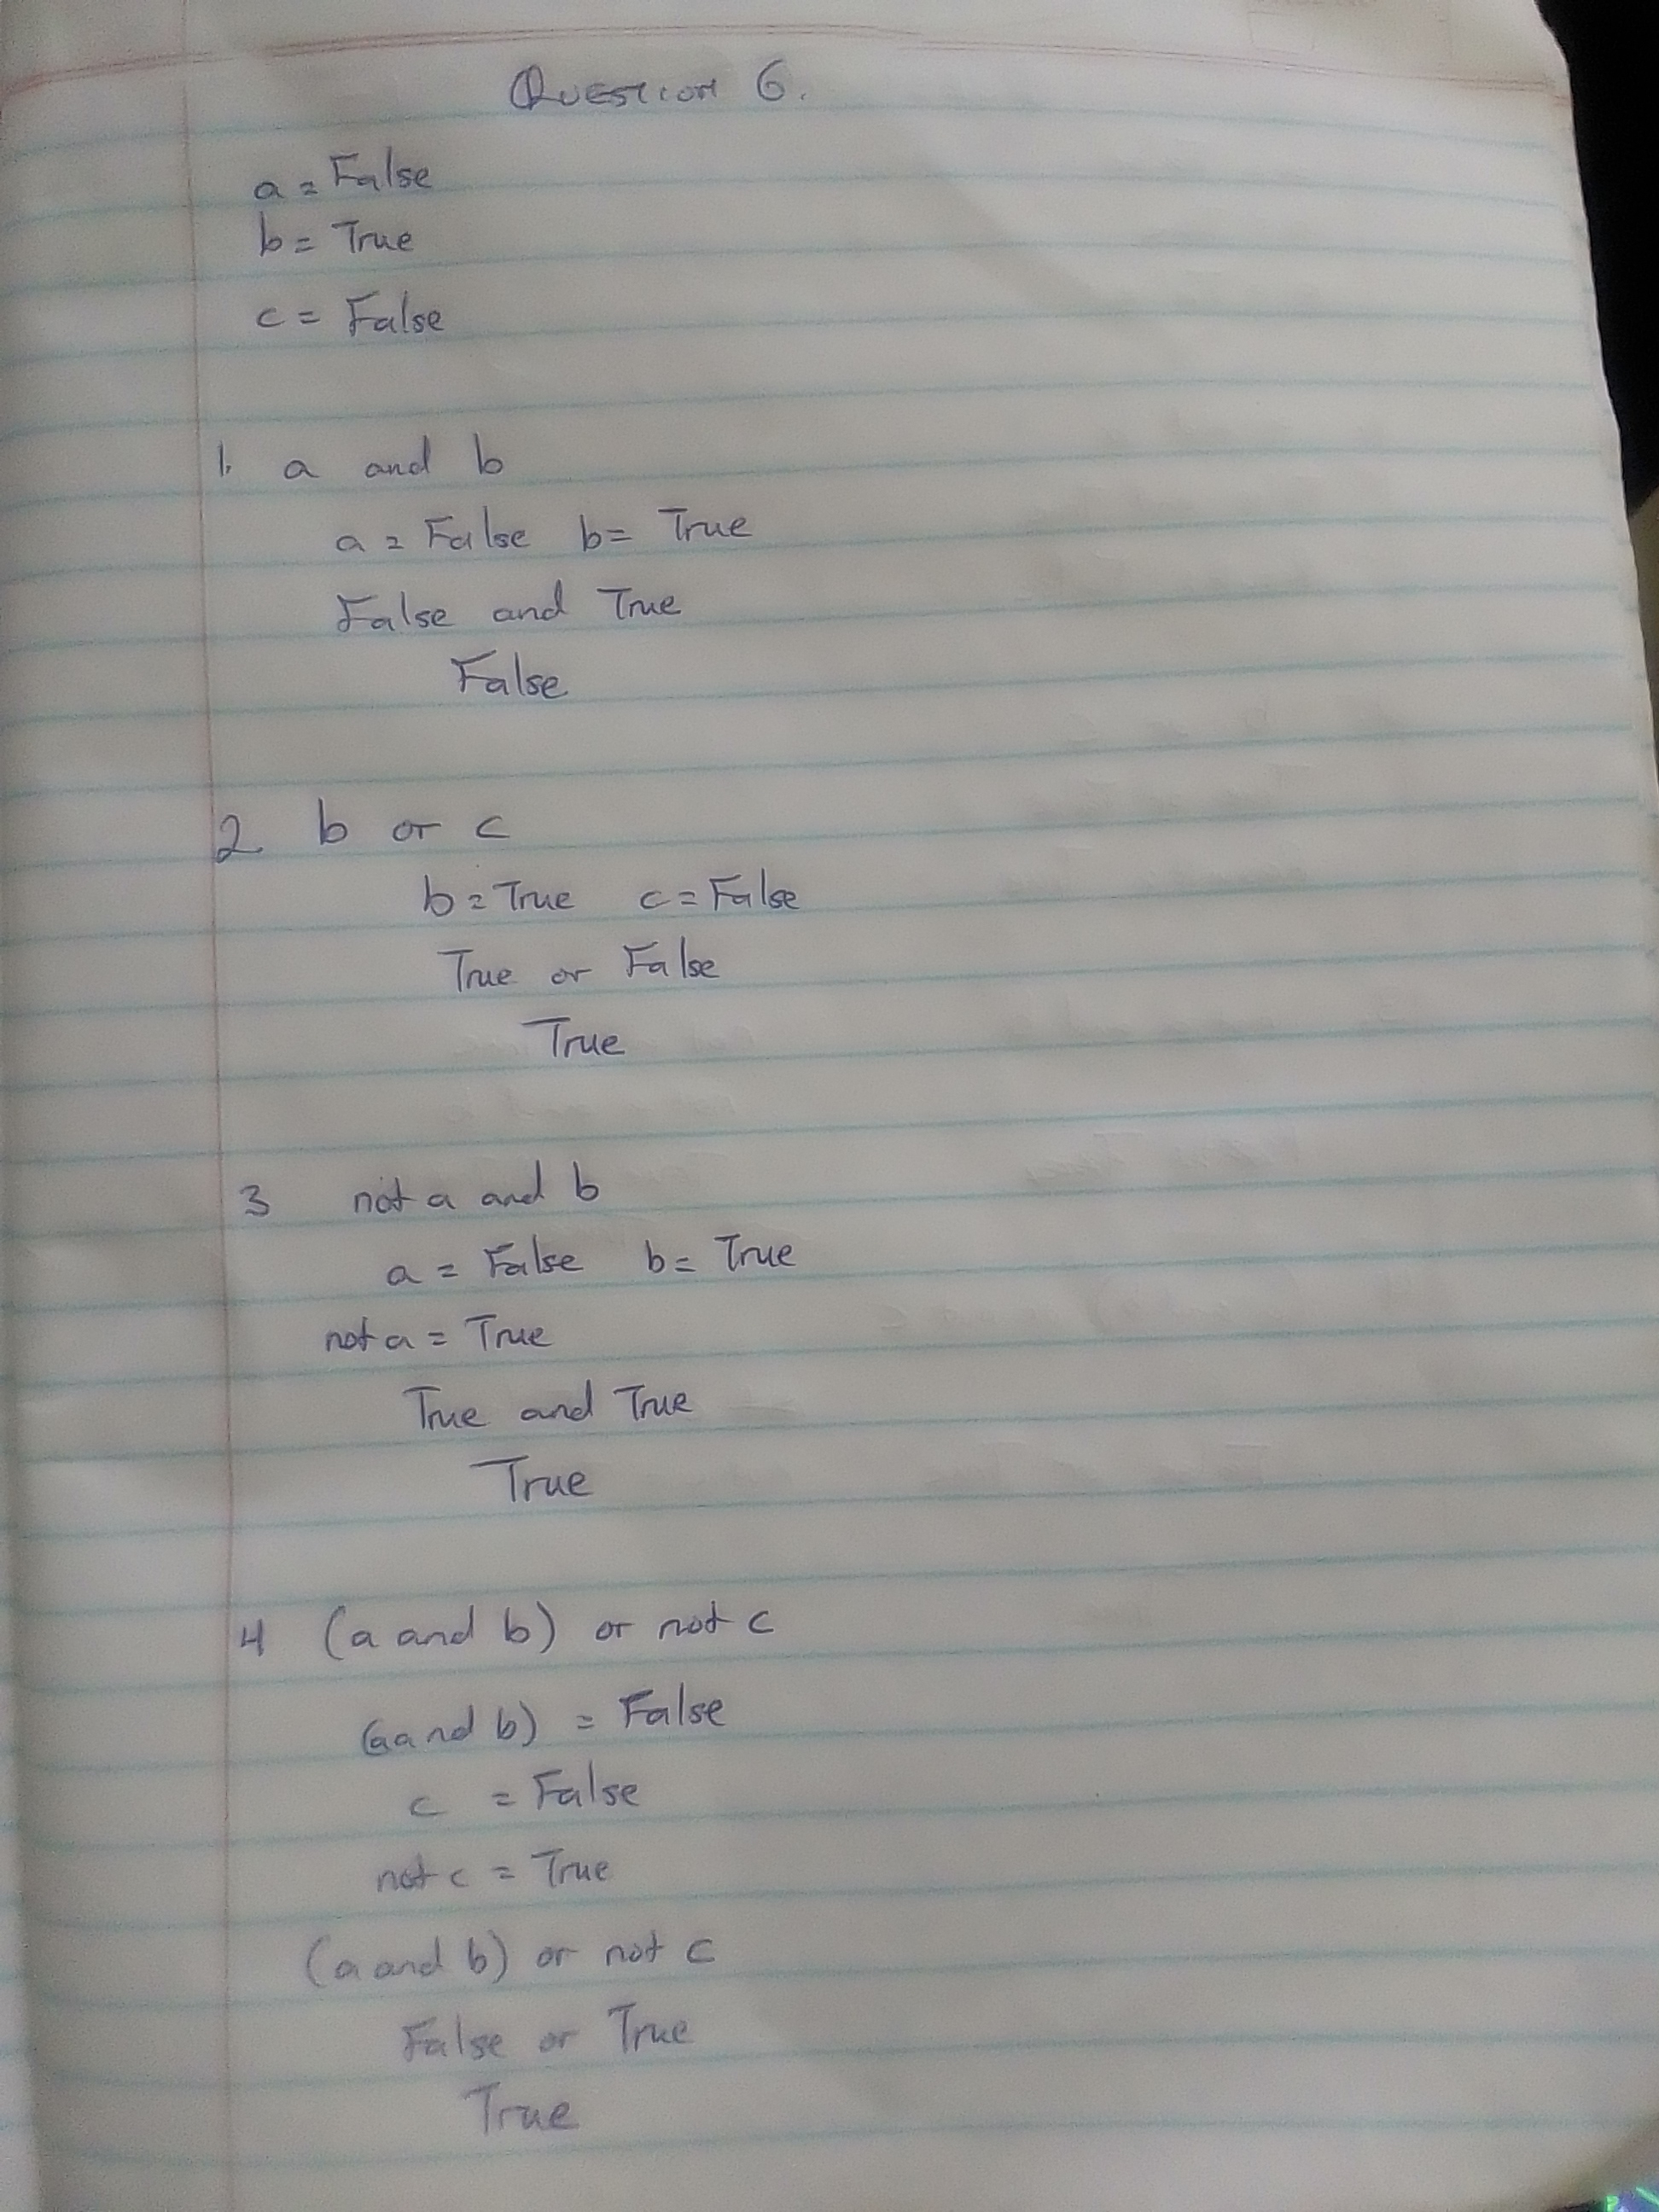 Question 6.
a = False
b = True
c = False
1. a and b
a = False b = True
False and True
False
2 b or c
b = True c = False
True or False
True
3 not a and b
a = False b = True
not a = True
True and True
True
4 (a and b) or not c
(a and b) = False
c = False
not c = True
(a and b) or not c
False or True
True